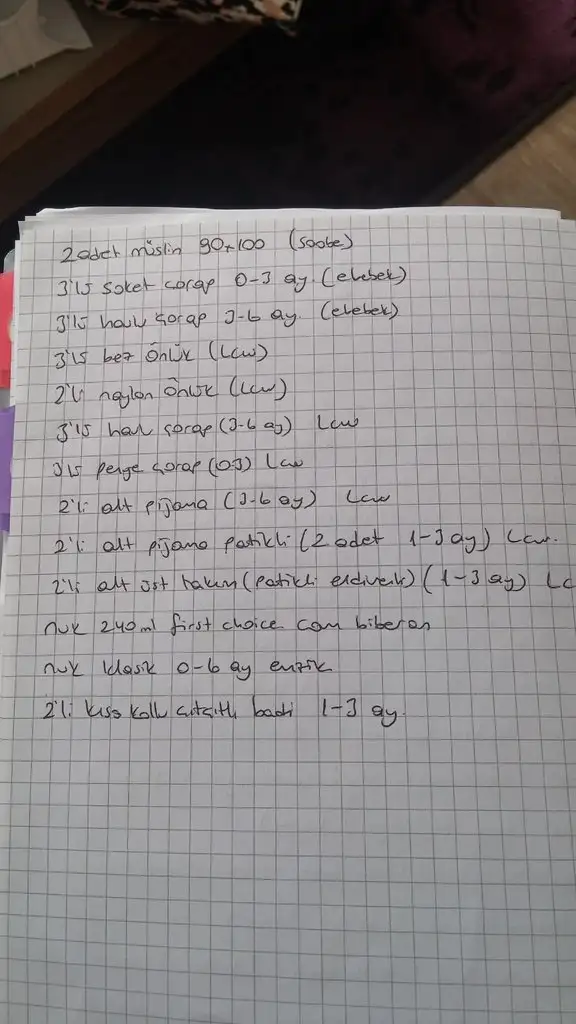 2 adet müslin 90x100 (soobe)
3'lü soket çorap 0-3 ay. (ebebek)
3'lü havlu çorap 3-6 ay. (ebebek)
3'lü bez önlük (Lcw)
2'li naylon önlük (Lcw)
3'lü havlu çorap (3-6 ay) Lcw
3lü penye çorap (0-3) Lcw
2'li alt pijama (3-6 ay) Lcw
2'li alt pijama patikli (2 adet 1-3 ay) Lcw.
2'li alt üst takım (patikli eldivenli) (1-3 ay) Lc
nuk 240 ml first choice cam biberon
nuk klasik 0-6 ay emzik
2'li kısa kollu çıtçıtlı badi 1-3 ay.